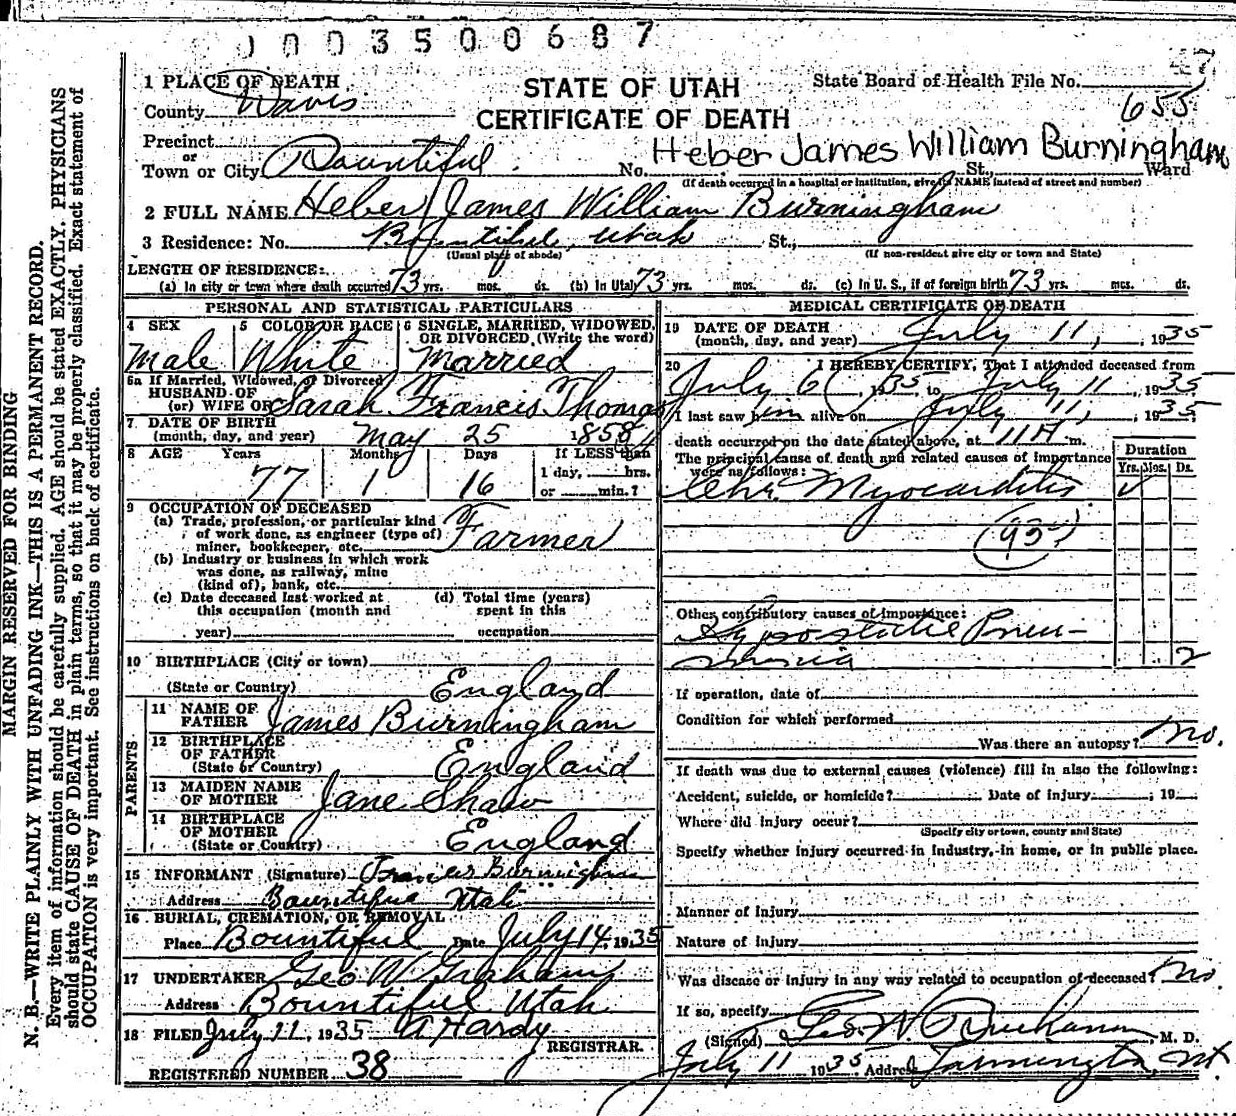 1 0 0 3 5 0 0 6 8 7
1 PLACE OF DEATH
County Davis
Precinct
or
Town or City Bountiful
STATE OF UTAH
CERTIFICATE OF DEATH
State Board of Health File No.
655
Heber James William Burningham
No. St., Ward
(If death occurred in a hospital or institution, give its NAME instead of street and number)
2 FULL NAME Heber James William Burningham
3 Residence: No. Bountiful, Utah St.,
(Usual place of abode) (If non-resident give city or town and State)
LENGTH OF RESIDENCE:
(a) In city or town where death occurred 73 yrs. mos. ds. (b) In Utah 73 yrs. mos. ds. (c) In U. S., if of foreign birth 73 yrs. mos. ds.
PERSONAL AND STATISTICAL PARTICULARS
4 SEX Male
5 COLOR OR RACE White
6 SINGLE, MARRIED, WIDOWED, OR DIVORCED (Write the word) Married
6a If Married, Widowed, or Divorced
HUSBAND OF
(or) WIFE OF Sarah Francis Thomas
7 DATE OF BIRTH
(month, day, and year) May 25 1858
8 AGE Years Months Days If LESS than
77 1 16 1 day, hrs.
or min.?
9 OCCUPATION OF DECEASED
(a) Trade, profession, or particular kind
of work done, as engineer (type of)
miner, bookkeeper, etc. Farmer
(b) Industry or business in which work
was done, as railway, mine
(kind of), bank, etc.
(c) Date deceased last worked at
this occupation (month and
year)
(d) Total time (years)
spent in this
occupation
10 BIRTHPLACE (City or town)
(State or Country) England
PARENTS
11 NAME OF
FATHER James Burningham
12 BIRTHPLACE
OF FATHER
(State or Country) England
13 MAIDEN NAME
OF MOTHER Jane Shaw
14 BIRTHPLACE
OF MOTHER
(State or Country) England
15 INFORMANT (Signature) Francis Burningham
Address Bountiful Utah
16 BURIAL, CREMATION, OR REMOVAL
Place Bountiful Date July 14, 1935
17 UNDERTAKER Geo W Graham
Address Bountiful Utah
18 FILED July 11 1935 A Hardy
REGISTRAR.
REGISTERED NUMBER 38
MEDICAL CERTIFICATE OF DEATH
19 DATE OF DEATH
(month, day, and year) July 11, , 1935
20 I HEREBY CERTIFY, That I attended deceased from
July 6, 1935, to July 11, 1935
I last saw him alive on July 11, , 1935
death occurred on the date stated above, at 11 A m.
The principal cause of death and related causes of importance
were as follows:
Duration
Yrs. Mos. Ds.
Chr. Myocarditis ✓
Other contributory causes of importance:
Hypostatic Pneu-
monia 2
If operation, date of
Condition for which performed
Was there an autopsy? No.
If death was due to external causes (violence) fill in also the following:
Accident, suicide, or homicide? Date of injury , 19
Where did injury occur?
(Specify city or town, county and State)
Specify whether injury occurred in industry, in home, or in public place.
Manner of injury
Nature of injury
Was disease or injury in any way related to occupation of deceased? No
If so, specify
(Signed) Geo. W. Buchanan, M. D.
July 11 1935 Address Farmington, Ut.
MARGIN RESERVED FOR BINDING
N. B.—WRITE PLAINLY WITH UNFADING INK—THIS IS A PERMANENT RECORD.
Every item of information should be carefully supplied. AGE should be stated EXACTLY. PHYSICIANS
should state CAUSE OF DEATH in plain terms, so that it may be properly classified. Exact statement of
OCCUPATION is very important. See instructions on back of certificate.